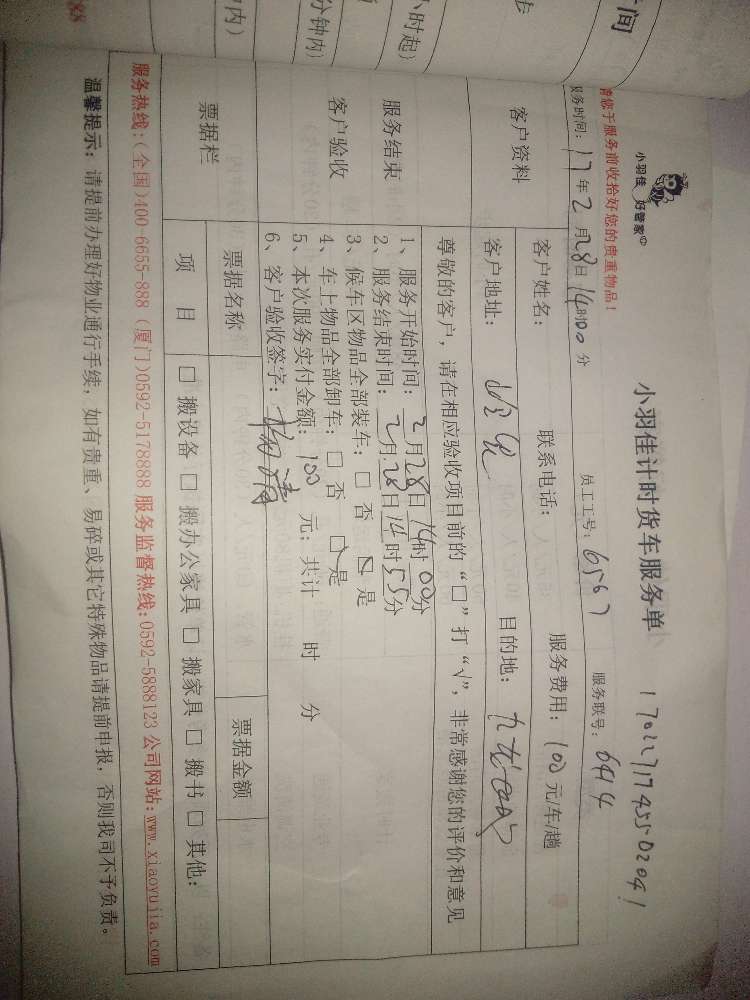 小羽佳 好管家
小羽佳计时货车服务单
请您于服务前收拾好您的贵重物品!
服务时间: 17年2月28日14时00分 员工工号: 6567 服务联号: 6414
客户资料
客户姓名: 联系电话: 服务费用: 100元/车/趟
客户地址: 目的地:
服务结束
客户验收
尊敬的客户，请在相应验收项目前的“□”打“√”，非常感谢您的评价和意见
1、服务开始时间: 2月28日14时00分
2、服务结束时间: 2月28日14时55分
3、候车区物品全部装车: □ 否 ☑ 是
4、车上物品全部卸车: □ 否 ☑ 是
5、本次服务实付金额: 100 元; 共计 时 分
6、客户验收签字:
票据栏
票据名称 票据金额
项 目 □ 搬设备 □ 搬办公家具 □ 搬家具 □ 搬书 □ 其他:
服务热线:(全国)400-6655-888 (厦门)0592-5178888 服务监督热线:0592-5888123 公司网站:www.xiaoyujia.com
温馨提示: 请提前办理好物业通行手续，如有贵重、易碎或其它特殊物品请提前申报，否则我司不予负责。
间
小时起)
分钟内)
内)